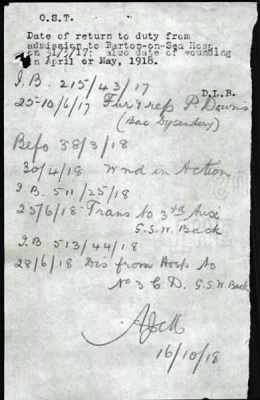 O.S.T.
Date of return to duty from
admission to Barton-on-Sea Hosp.
on 31/3/17: also date of wounding
in April or May, 1918.
D.L.B.
I.B. 215/43/17
25-10/6/17 Fur & rep P. Downs
(Bac Dysentery)
Befo 38/3/18
30/4/18 Wnd in Action
I.B. 511/25/18
25/6/18 Trans to 3rd Aux
G.S.W. Back
I.B 513/44/18
28/6/18 Dis from Hosp to
No 3 C.D. G.S.W Back
16/10/18